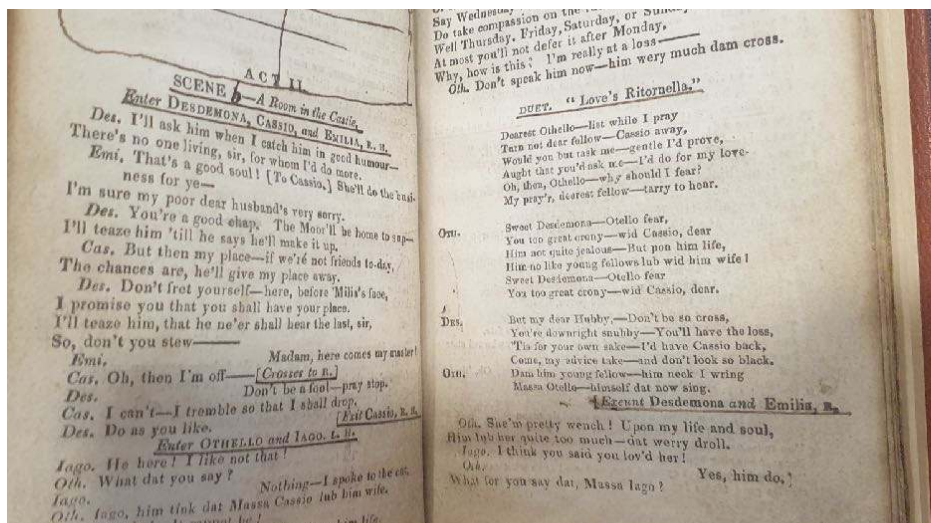 ACT II.
SCENE —A Room in the Castle.
Enter DESDEMONA, CASSIO, and EMILIA, R. H.
Des. I'll ask him when I catch him in good humour—
There's no one living, sir, for whom I'd do more.
Emi. That's a good soul! [To Cassio.] She'll do the busi-
ness for ye—
I'm sure my poor dear husband's very sorry.
Des. You're a good chap. The Moor'll be home to sup—
I'll teaze him 'till he says he'll make it up.
Cas. But then my place—if we're not friends to-day,
The chances are, he'll give my place away.
Des. Don't fret yourself—here, before 'Milia's face,
I promise you that you shall have your place.
I'll teaze him, that he ne'er shall hear the last, sir,
So, don't you stew——
Emi. Madam, here comes my master!
Cas. Oh, then I'm off—[Crosses to R.]
Des. Don't be a fool—pray stop.
Cas. I can't—I tremble so that I shall drop.
Des. Do as you like. [Exit Cassio, R. H.
Enter OTHELLO and IAGO. L. H.
Iago. He here! I like not that!
Oth. What dat you say?
Iago. Nothing—I spoke to the cat.
Oth. Iago, him tink dat Massa Cassio lub him wife.
him life.
Say Wednesday
Do take compassion on the
Well Thursday, Friday, Saturday, or Sunday
At most you'll not defer it after Monday.
Why, how is this? I'm really at a loss——
Oth. Don't speak him now—him wery much dam cross.
DUET. "Love's Ritornella."
Dearest Othello—list while I pray
Turn not dear fellow—Cassio away,
Would you but task me—gentle I'd prove,
Aught that you'd ask me—I'd do for my love-
Oh, then, Othello—why should I fear?
My pray'r, dearest fellow—tarry to hear.
OTH. Sweet Desdemona—Otello fear,
You too great crony—wid Cassio, dear
Him not quite jealous—But pon him life,
Him no like young fellows lub wid him wife!
Sweet Desdemona—Otello fear
You too great crony—wid Cassio, dear.
DES. But my dear Hubby,—Don't be so cross,
You're downright snubby—You'll have the loss,
'Tis for your own sake—I'd have Cassio back,
Come, my advice take—and don't look so black.
OTH. Dam him young fellow—him neck I wring
Massa Otello—himself dat now sing.
[Exeunt Desdemona and Emilia, R.
Oth. She'm pretty wench! Upon my life and soul,
Him lub her quite too much—dat worry droll.
Iago. I think you said you lov'd her!
Oth. Yes, him do,
What for you say dat, Massa Iago?